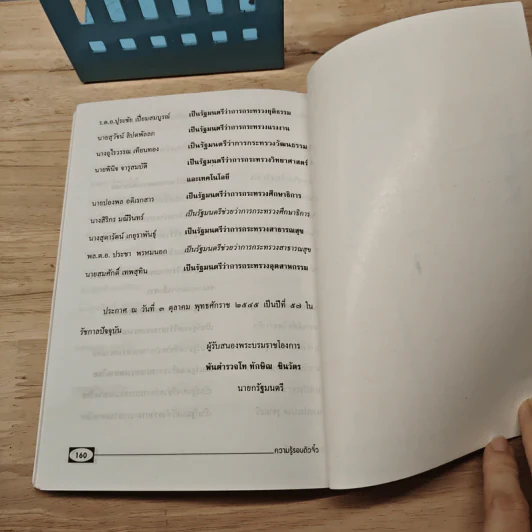 ร.ต.อ.ปุระชัย เปี่ยมสมบูรณ์ เป็นรัฐมนตรีว่าการกระทรวงยุติธรรม
นายสุวัจน์ ลิปตพัลลภ เป็นรัฐมนตรีว่าการกระทรวงแรงงาน
นางอุไรวรรณ เทียนทอง เป็นรัฐมนตรีว่าการกระทรวงวัฒนธรรม
นายพินิจ จารุสมบัติ เป็นรัฐมนตรีว่าการกระทรวงวิทยาศาสตร์
และเทคโนโลยี
นายปองพล อดิเรกสาร เป็นรัฐมนตรีว่าการกระทรวงศึกษาธิการ
นางสิริกร มณีรินทร์ เป็นรัฐมนตรีช่วยว่าการกระทรวงศึกษาธิการ
นางสุดารัตน์ เกยุราพันธุ์ เป็นรัฐมนตรีว่าการกระทรวงสาธารณสุข
พล.ต.อ. ประชา พรหมนอก เป็นรัฐมนตรีช่วยว่าการกระทรวงสาธารณสุข
นายสมศักดิ์ เทพสุทิน เป็นรัฐมนตรีว่าการกระทรวงอุตสาหกรรม
ประกาศ ณ วันที่ ๓ ตุลาคม พุทธศักราช ๒๕๔๕ เป็นปีที่ ๕๗ ใน
รัชกาลปัจจุบัน
ผู้รับสนองพระบรมราชโองการ
พันตำรวจโท ทักษิณ ชินวัตร
นายกรัฐมนตรี
160 ความรู้รอบตัวจิ๋ว